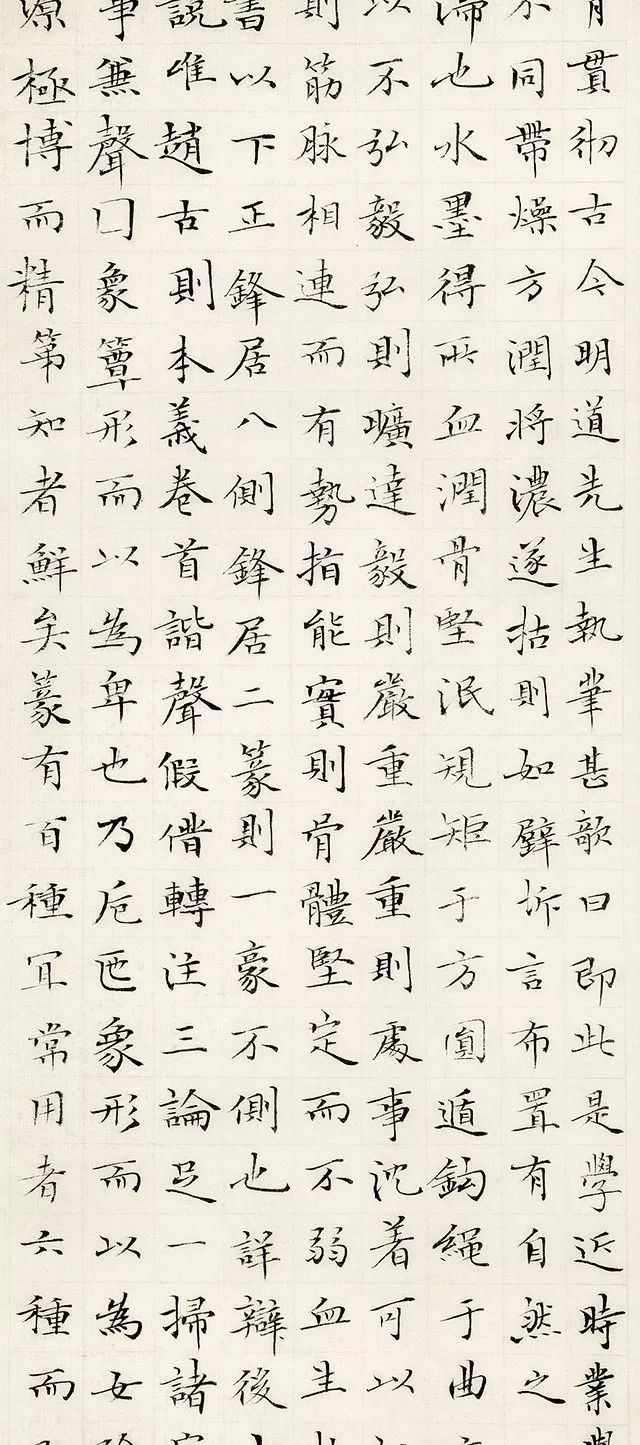 貫彻古今明道先生執筆甚敬曰即此是學近時業
不同帶燥方潤將濃遂枯則如壁坼言布置有自然之
滯也水墨得所血潤骨堅泯規矩于方圓遁鈎繩于曲
以不弘毅弘則曠達毅則嚴重嚴重則處事沈着可以
則筋脉相連而有勢指能實則骨體堅定而不弱血生
書以下正鋒居八側鋒居二篆則一豪不側也詳辯後
說唯趙古則本義卷首諧聲假借轉注三論足一掃諸
事兼聲口象簟形而以為卑也乃卮匜象形而以為女
源極博而精第知者鮮矣篆有百種冝常用者六種而